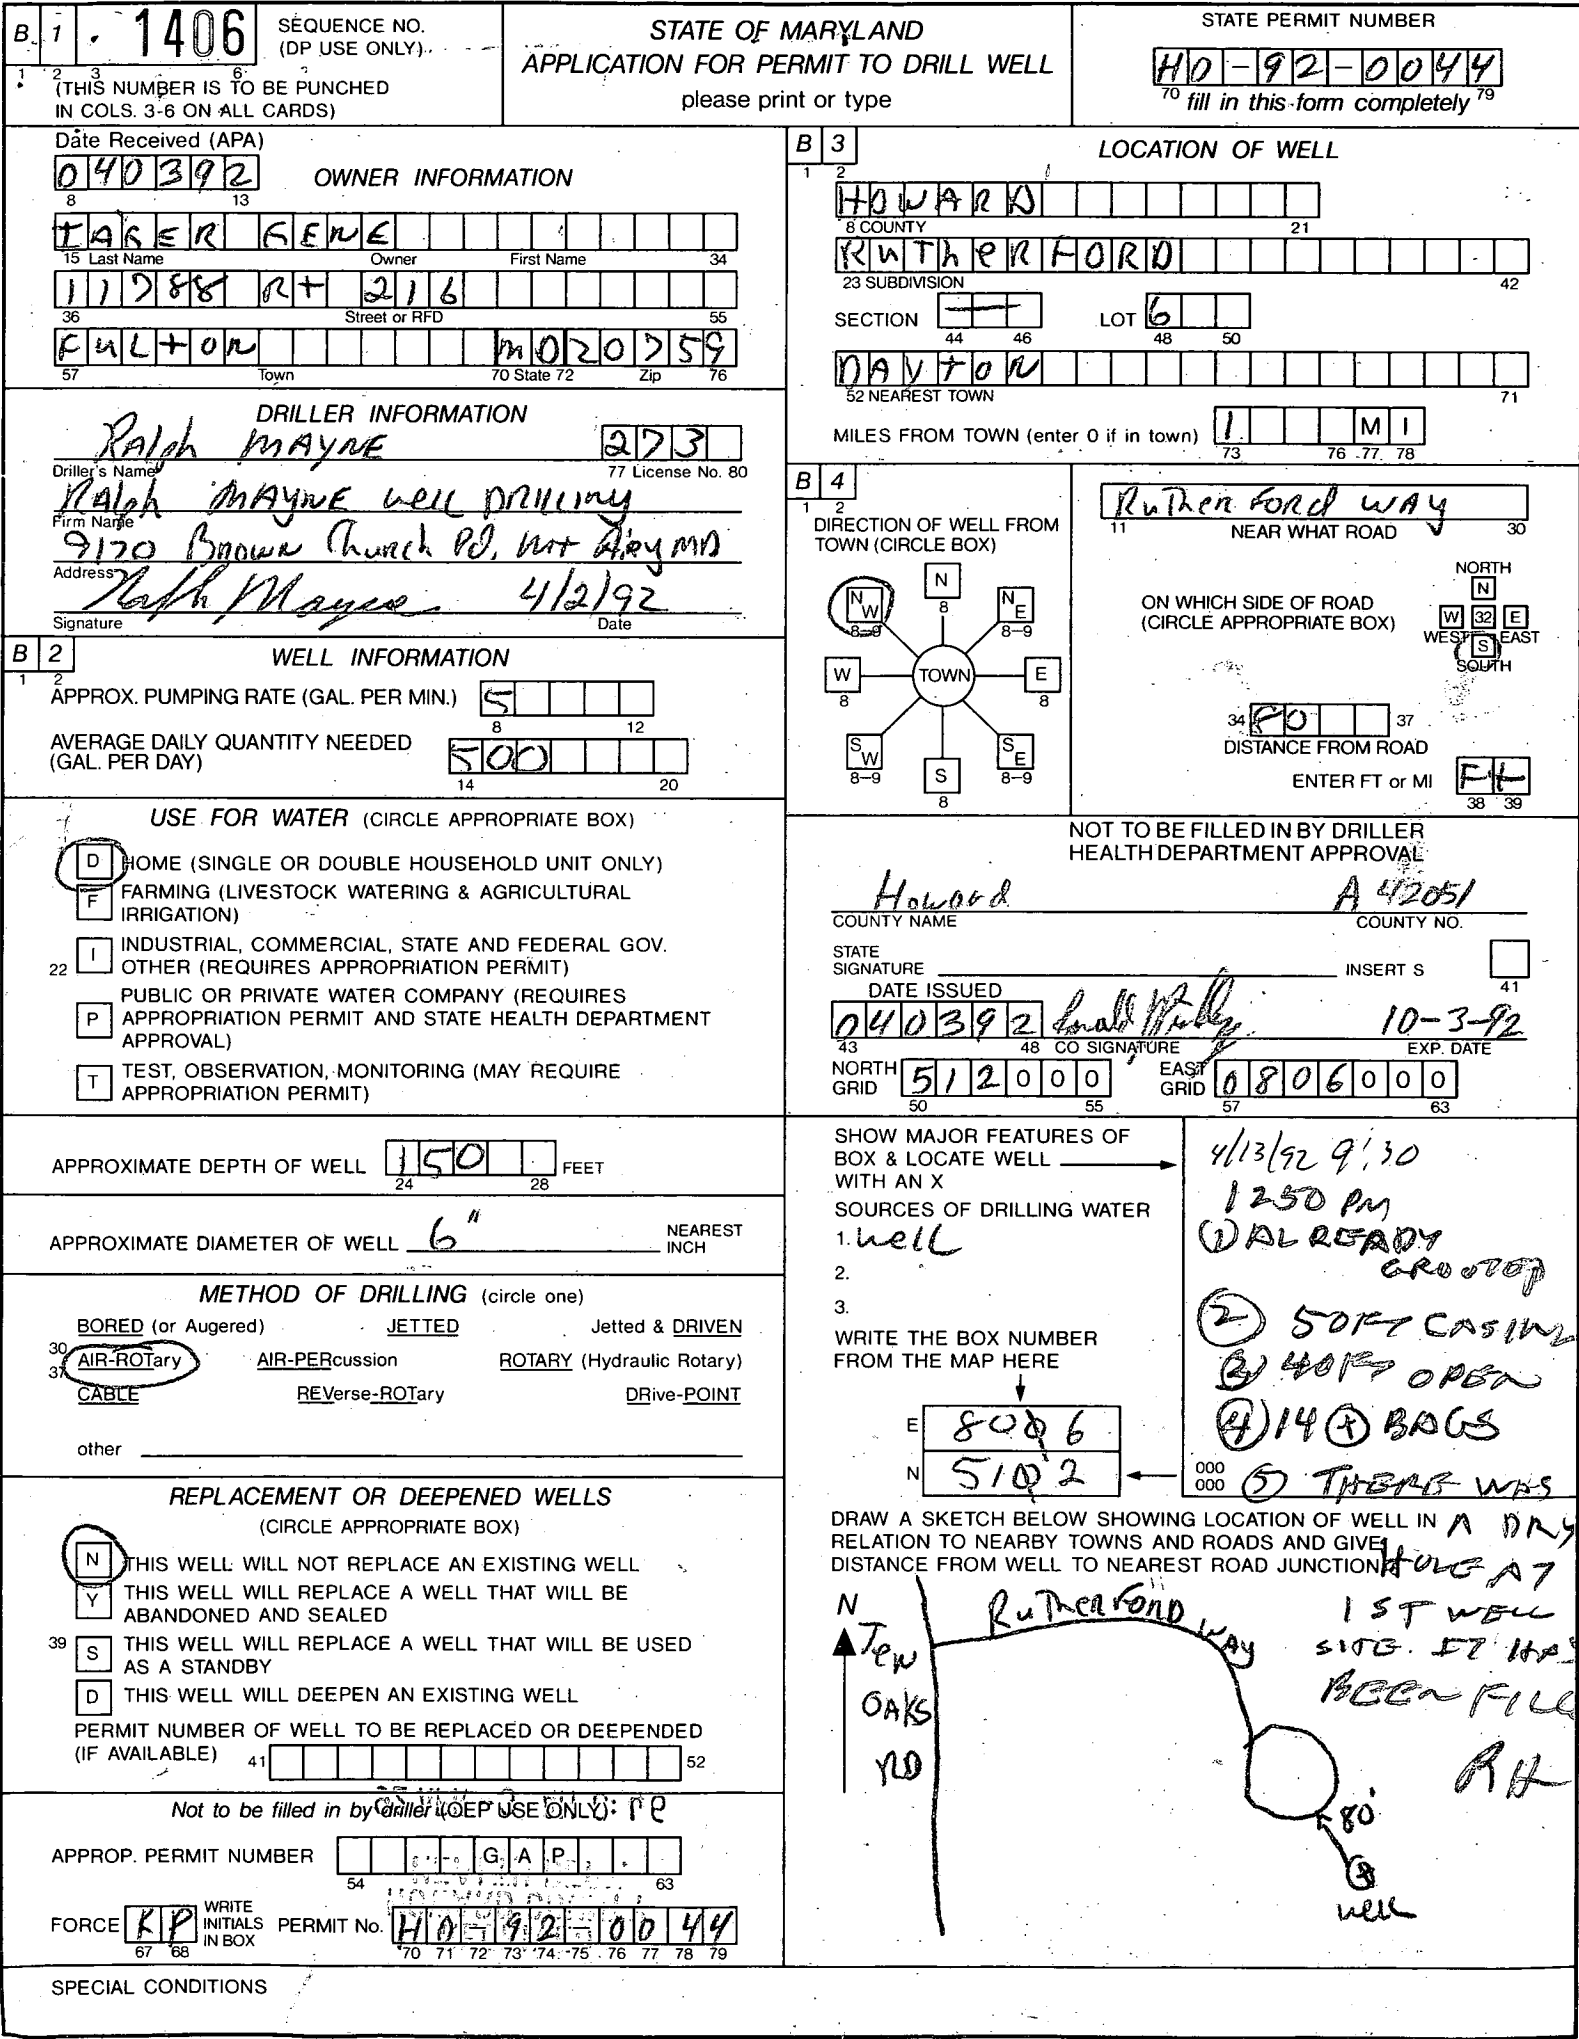 B 1 1406 SEQUENCE NO.
(DP USE ONLY)
1 2 3 6
(THIS NUMBER IS TO BE PUNCHED
IN COLS. 3-6 ON ALL CARDS)
STATE OF MARYLAND
APPLICATION FOR PERMIT TO DRILL WELL
please print or type
STATE PERMIT NUMBER
HO-92-0044
70 fill in this form completely 79
Date Received (APA)
040392
8 13
OWNER INFORMATION
IAGER GENE
15 Last Name Owner First Name 34
11788 Rt 216
36 Street or RFD 55
FULTON MD20759
57 Town 70 State 72 Zip 76
DRILLER INFORMATION
Ralph MAYNE 273
Driller's Name 77 License No. 80
Ralph MAYNE well DRilling
Firm Name
9120 Brown Church Rd. Mt Airy MD
Address
Ralph Mayne 4/2/92
Signature Date
B 2 WELL INFORMATION
1 2
APPROX. PUMPING RATE (GAL. PER MIN.) 5
8 12
AVERAGE DAILY QUANTITY NEEDED
(GAL. PER DAY) 500
14 20
USE FOR WATER (CIRCLE APPROPRIATE BOX)
D HOME (SINGLE OR DOUBLE HOUSEHOLD UNIT ONLY)
F FARMING (LIVESTOCK WATERING & AGRICULTURAL
IRRIGATION)
22 I INDUSTRIAL, COMMERCIAL, STATE AND FEDERAL GOV.
OTHER (REQUIRES APPROPRIATION PERMIT)
P PUBLIC OR PRIVATE WATER COMPANY (REQUIRES
APPROPRIATION PERMIT AND STATE HEALTH DEPARTMENT
APPROVAL)
T TEST, OBSERVATION, MONITORING (MAY REQUIRE
APPROPRIATION PERMIT)
APPROXIMATE DEPTH OF WELL 150 FEET
24 28
APPROXIMATE DIAMETER OF WELL 6" NEAREST
INCH
METHOD OF DRILLING (circle one)
BORED (or Augered) JETTED Jetted & DRIVEN
30 AIR-ROTary AIR-PERcussion ROTARY (Hydraulic Rotary)
37 CABLE REVerse-ROTary DRive-POINT
other
REPLACEMENT OR DEEPENED WELLS
(CIRCLE APPROPRIATE BOX)
N THIS WELL WILL NOT REPLACE AN EXISTING WELL
Y THIS WELL WILL REPLACE A WELL THAT WILL BE
ABANDONED AND SEALED
39 S THIS WELL WILL REPLACE A WELL THAT WILL BE USED
AS A STANDBY
D THIS WELL WILL DEEPEN AN EXISTING WELL
PERMIT NUMBER OF WELL TO BE REPLACED OR DEEPENDED
(IF AVAILABLE) 41 52
Not to be filled in by driller (OEP USE ONLY)
APPROP. PERMIT NUMBER G A P
54 63
FORCE KP WRITE INITIALS IN BOX PERMIT No. HO-92-0044
67 68 70 71 72 73 74 75 76 77 78 79
SPECIAL CONDITIONS
B 3 LOCATION OF WELL
1 2
HOWARD
8 COUNTY 21
RuTheRFORD
23 SUBDIVISION 42
SECTION — LOT 6
44 46 48 50
DAYTON
52 NEAREST TOWN 71
MILES FROM TOWN (enter 0 if in town) 1 M I
73 76 77 78
B 4
1 2
DIRECTION OF WELL FROM
TOWN (CIRCLE BOX)
N
8
NW NE
8-9 8-9
W TOWN E
8 8
SW SE
8-9 8-9
S
8
RuTherFord WAY
11 NEAR WHAT ROAD 30
ON WHICH SIDE OF ROAD
(CIRCLE APPROPRIATE BOX)
NORTH
N
W 32 E
WEST EAST
S
SOUTH
34 80 37
DISTANCE FROM ROAD
ENTER FT or MI Ft
38 39
NOT TO BE FILLED IN BY DRILLER
HEALTH DEPARTMENT APPROVAL
Howard A 42051
COUNTY NAME COUNTY NO.
STATE
SIGNATURE INSERT S
41
DATE ISSUED
040392 10-3-92
43 48 CO SIGNATURE EXP. DATE
NORTH
GRID 512000 EAST
GRID 0806000
50 55 57 63
SHOW MAJOR FEATURES OF
BOX & LOCATE WELL
WITH AN X
SOURCES OF DRILLING WATER
1. well
2.
3.
WRITE THE BOX NUMBER
FROM THE MAP HERE
E 8006
N 5102
000
000
4/13/92 9:30
1250 PM
(1) ALREADY
GROUTED
(2) 50FT CASING
(3) 40FT OPEN
(4) 14 + BAGS
(5) THERE WAS
A DRY
HOLE AT
1ST WELL
SITE. IT HAS
BEEN FILL
RH
DRAW A SKETCH BELOW SHOWING LOCATION OF WELL IN
RELATION TO NEARBY TOWNS AND ROADS AND GIVE
DISTANCE FROM WELL TO NEAREST ROAD JUNCTION
N
Ten
OAKS
RD
RuTherFORD WAY
80'
well